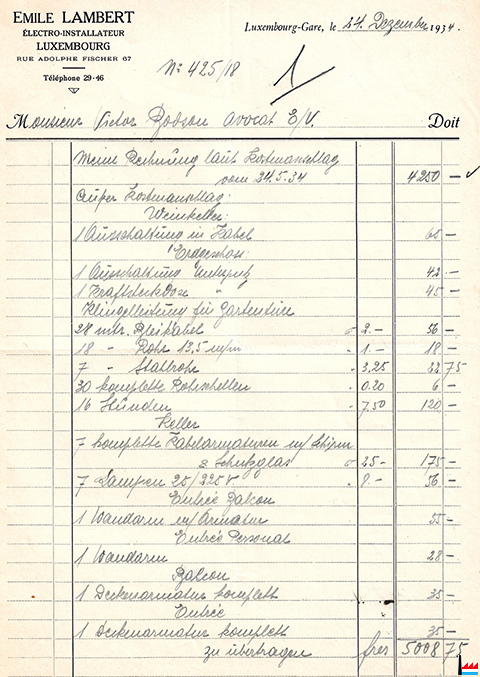 EMILE LAMBERT
ÉLECTRO-INSTALLATEUR
LUXEMBOURG
RUE ADOLPHE FISCHER 67
Téléphone 29-46
Luxembourg-Gare, le 24. Dezember 1934.
No 425/18
1
Monsieur Victor Bodson Avocat E/V. Doit
Meine Rechnung laut Kostenanschlag
vom 24.5.34 4250 —
Außer Kostenanschlag:
Weinkeller:
1 Ausschaltung in Kabel 65 —
Erdgeschoss:
1 Ausschaltung 42 —
1 Kraftsteckdose " 45 —
Klingelleitung für Gartentüre
28 mtr. Bleikabel à 2.- 56 —
18 - Rohr 13,5 m/m - 1.- 18 —
7 - Stahlrohr - 3,25 22 75
30 komplette Rohrschellen - 0.20 6 —
16 Stunden - 7.50 120 —
Keller
7 komplette Kabelarmaturen m/ Schirm
& Schutzglas à 25- 175 —
7 Lampen 25/225 V - 8.- 56 —
Entrée Balcon
1 Wandarm m/ Armatur 55 —
Entrée Personal
1 Wandarm 28 —
Balcon
1 Deckenarmatur komplett 35 —
Entrée
1 Deckenarmatur komplett 35 —
zu übertragen frcs 5008 75